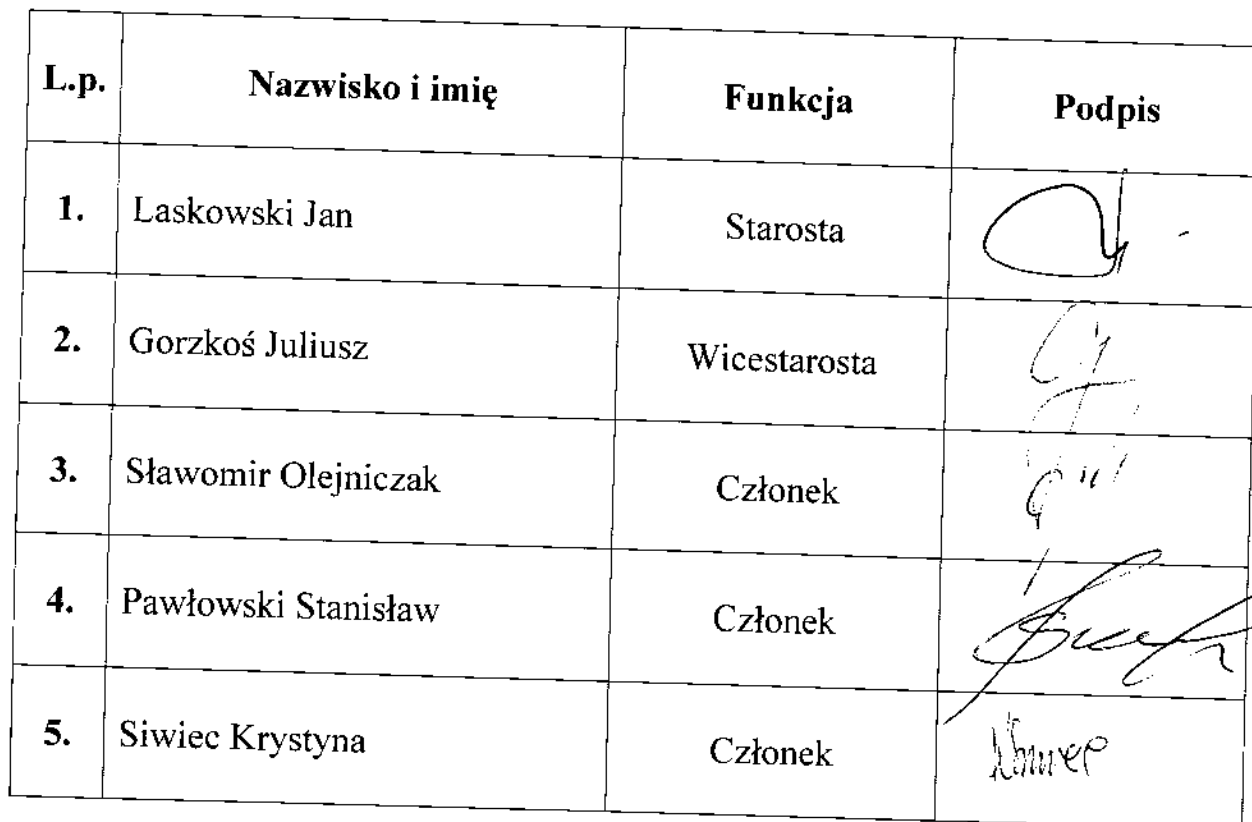 L.p. Nazwisko i imię Funkcja Podpis
1. Laskowski Jan Starosta
2. Gorzkoś Juliusz Wicestarosta
3. Sławomir Olejniczak Członek
4. Pawłowski Stanisław Członek
5. Siwiec Krystyna Członek